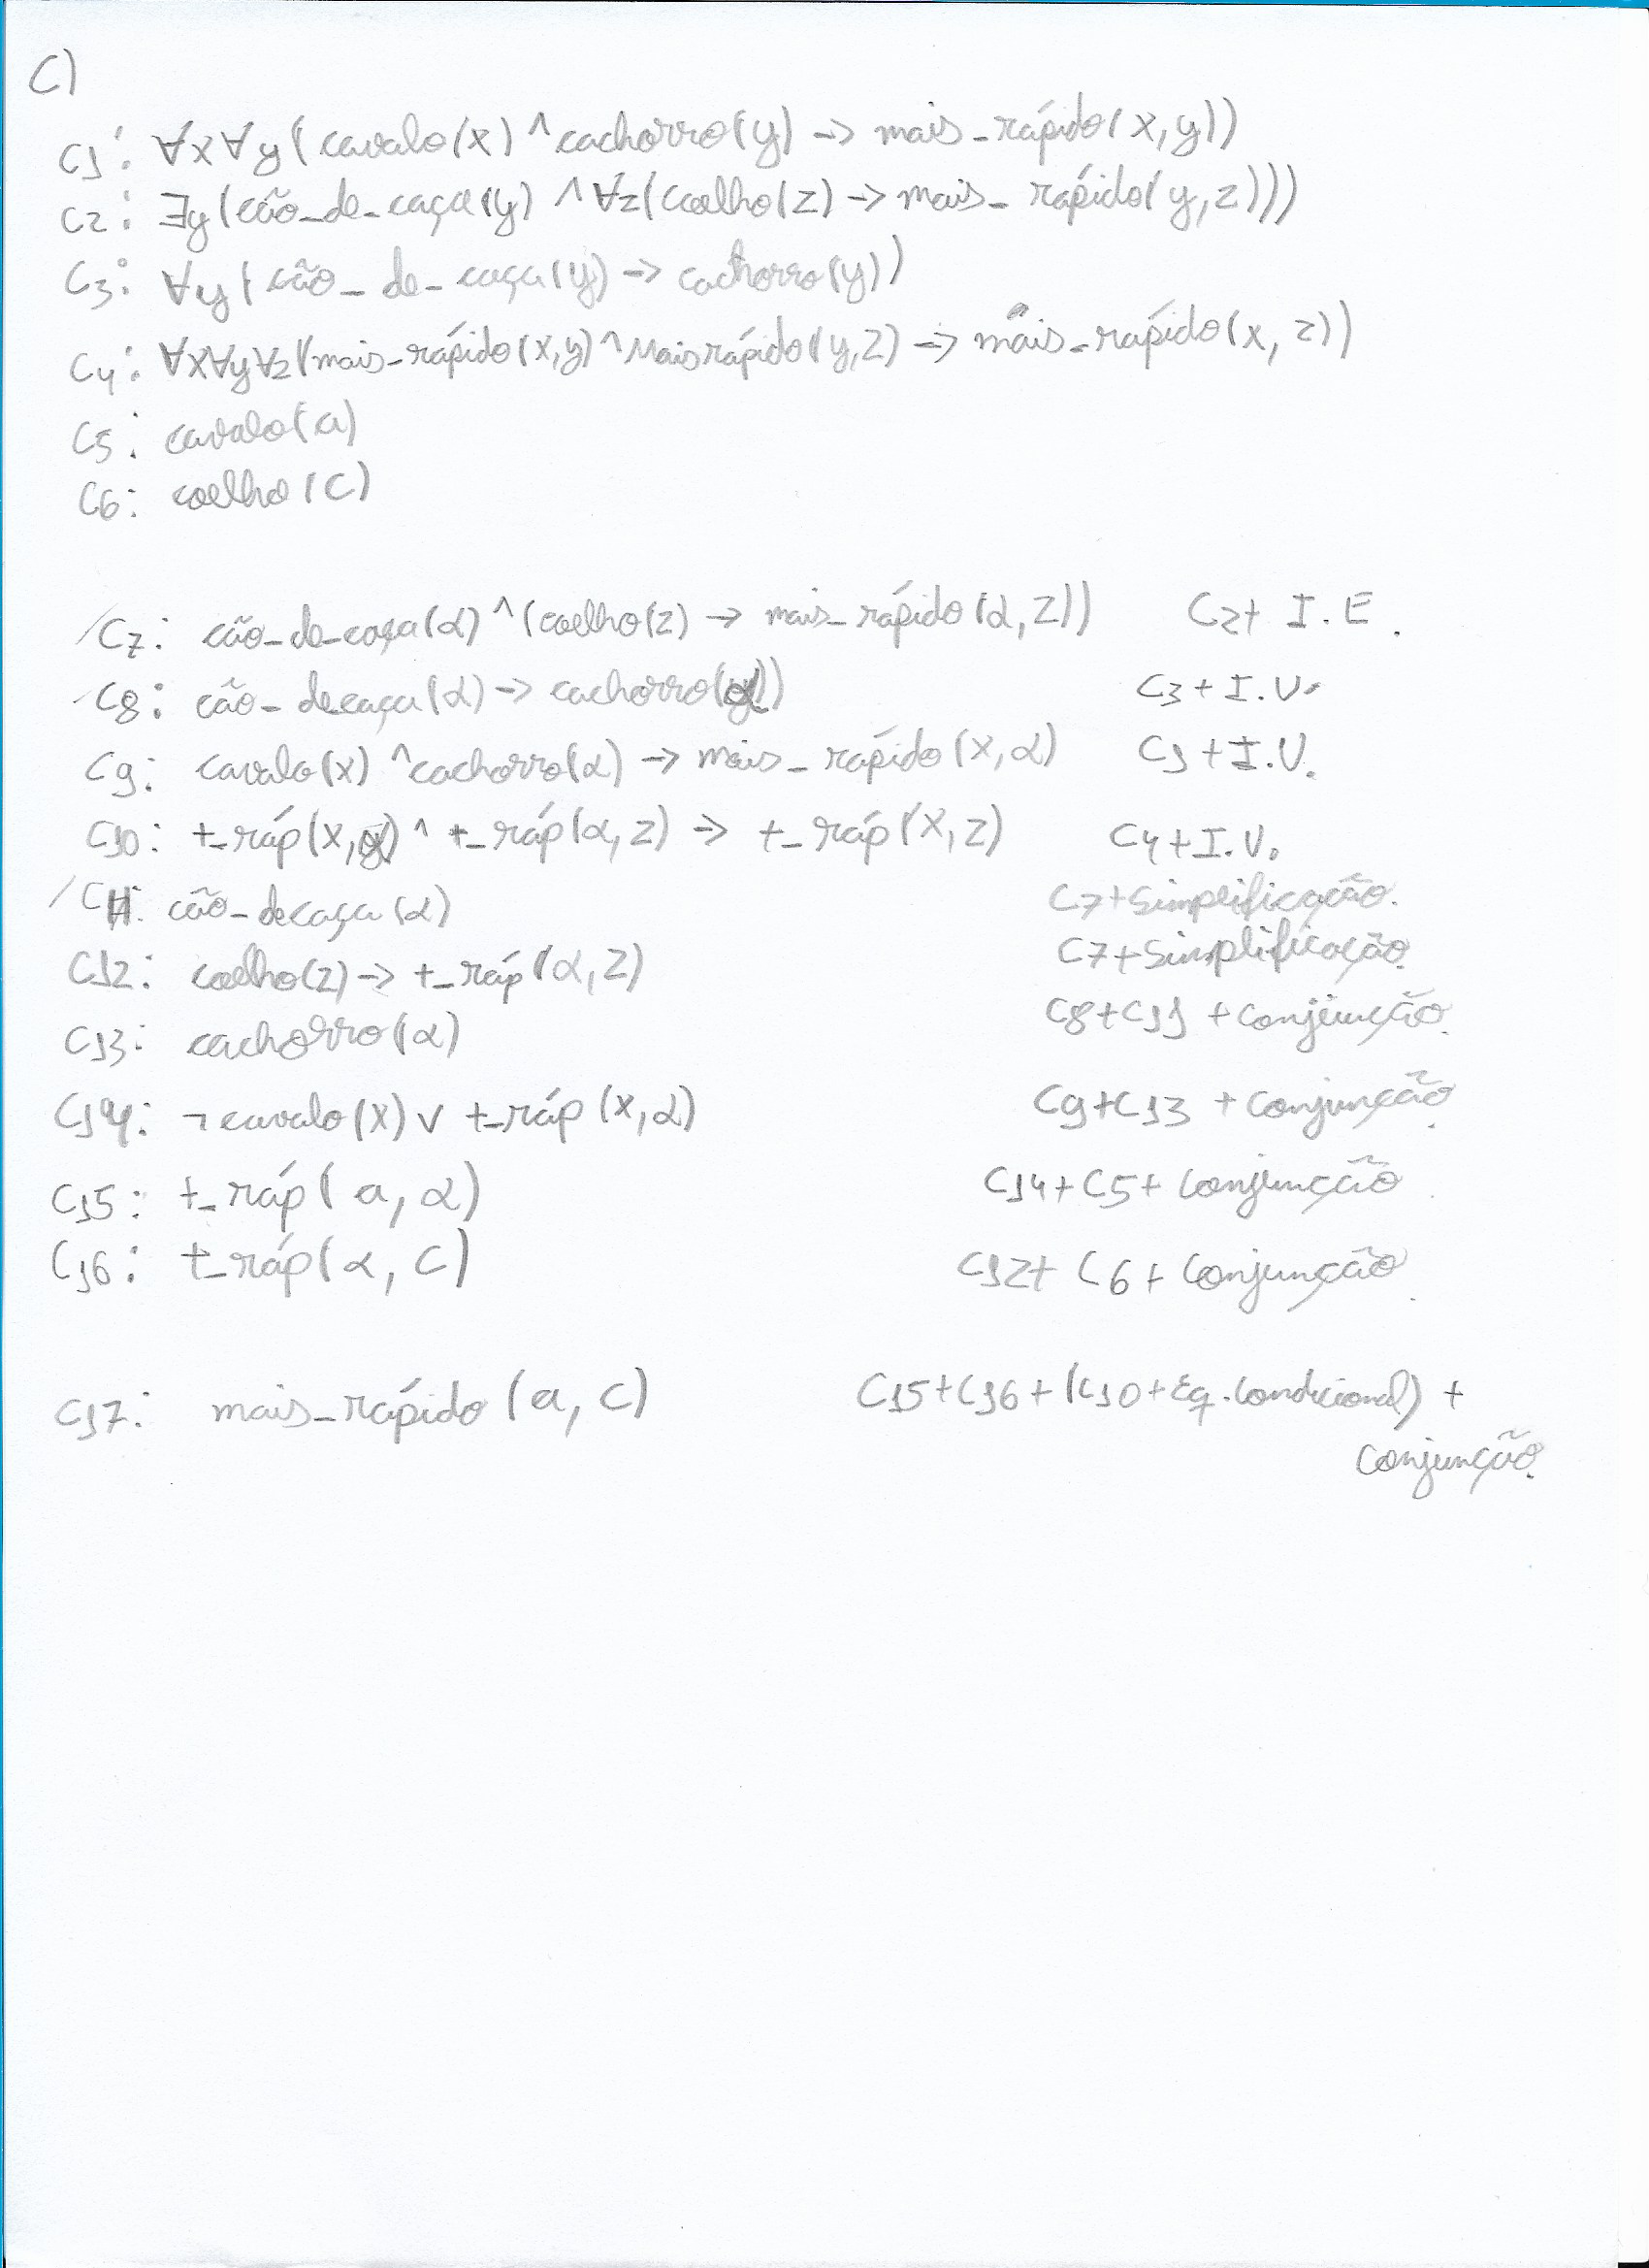 C)
C1: ∀x∀y(cavalo(x) ^ cachorro(y) -> mais_rápido(x,y))
C2: ∃y(cão_de_caça(y) ^ ∀z(coelho(z) -> mais_rápido(y,z)))
C3: ∀y(cão_de_caça(y) -> cachorro(y))
C4: ∀x∀y∀z(mais_rápido(x,y) ^ Maisrápido(y,z) -> mais_rápido(x,z))
C5: cavalo(a)
C6: coelho(C)
C7: cão_de_caça(α) ^ (coelho(z) -> mais_rápido(α,z)) C2+ I.E.
C8: cão_decaça(α) -> cachorro(α)) C3+I.U.
C9: cavalo(x) ^ cachorro(α) -> mais_rápido(x,α) C1+I.U.
C10: +_ráp(x,α) ^ +_ráp(α,z) -> +_ráp(x,z) C4+I.U.
C11: cão_decaça(α) C7+Simplificação.
C12: coelho(z) -> +_ráp(α,z) C7+Simplificação.
C13: cachorro(α) C8+C11 +conjunção.
C14: ¬cavalo(x) v +_ráp(x,α) C9+C13 +conjunção.
C15: +_ráp(a,α) C14+C5+conjunção.
C16: +_ráp(α,C) C12+ C6+ conjunção.
C17: mais_rápido(a,C) C15+C16+(C10+Eq.Condicional)+
conjunção.